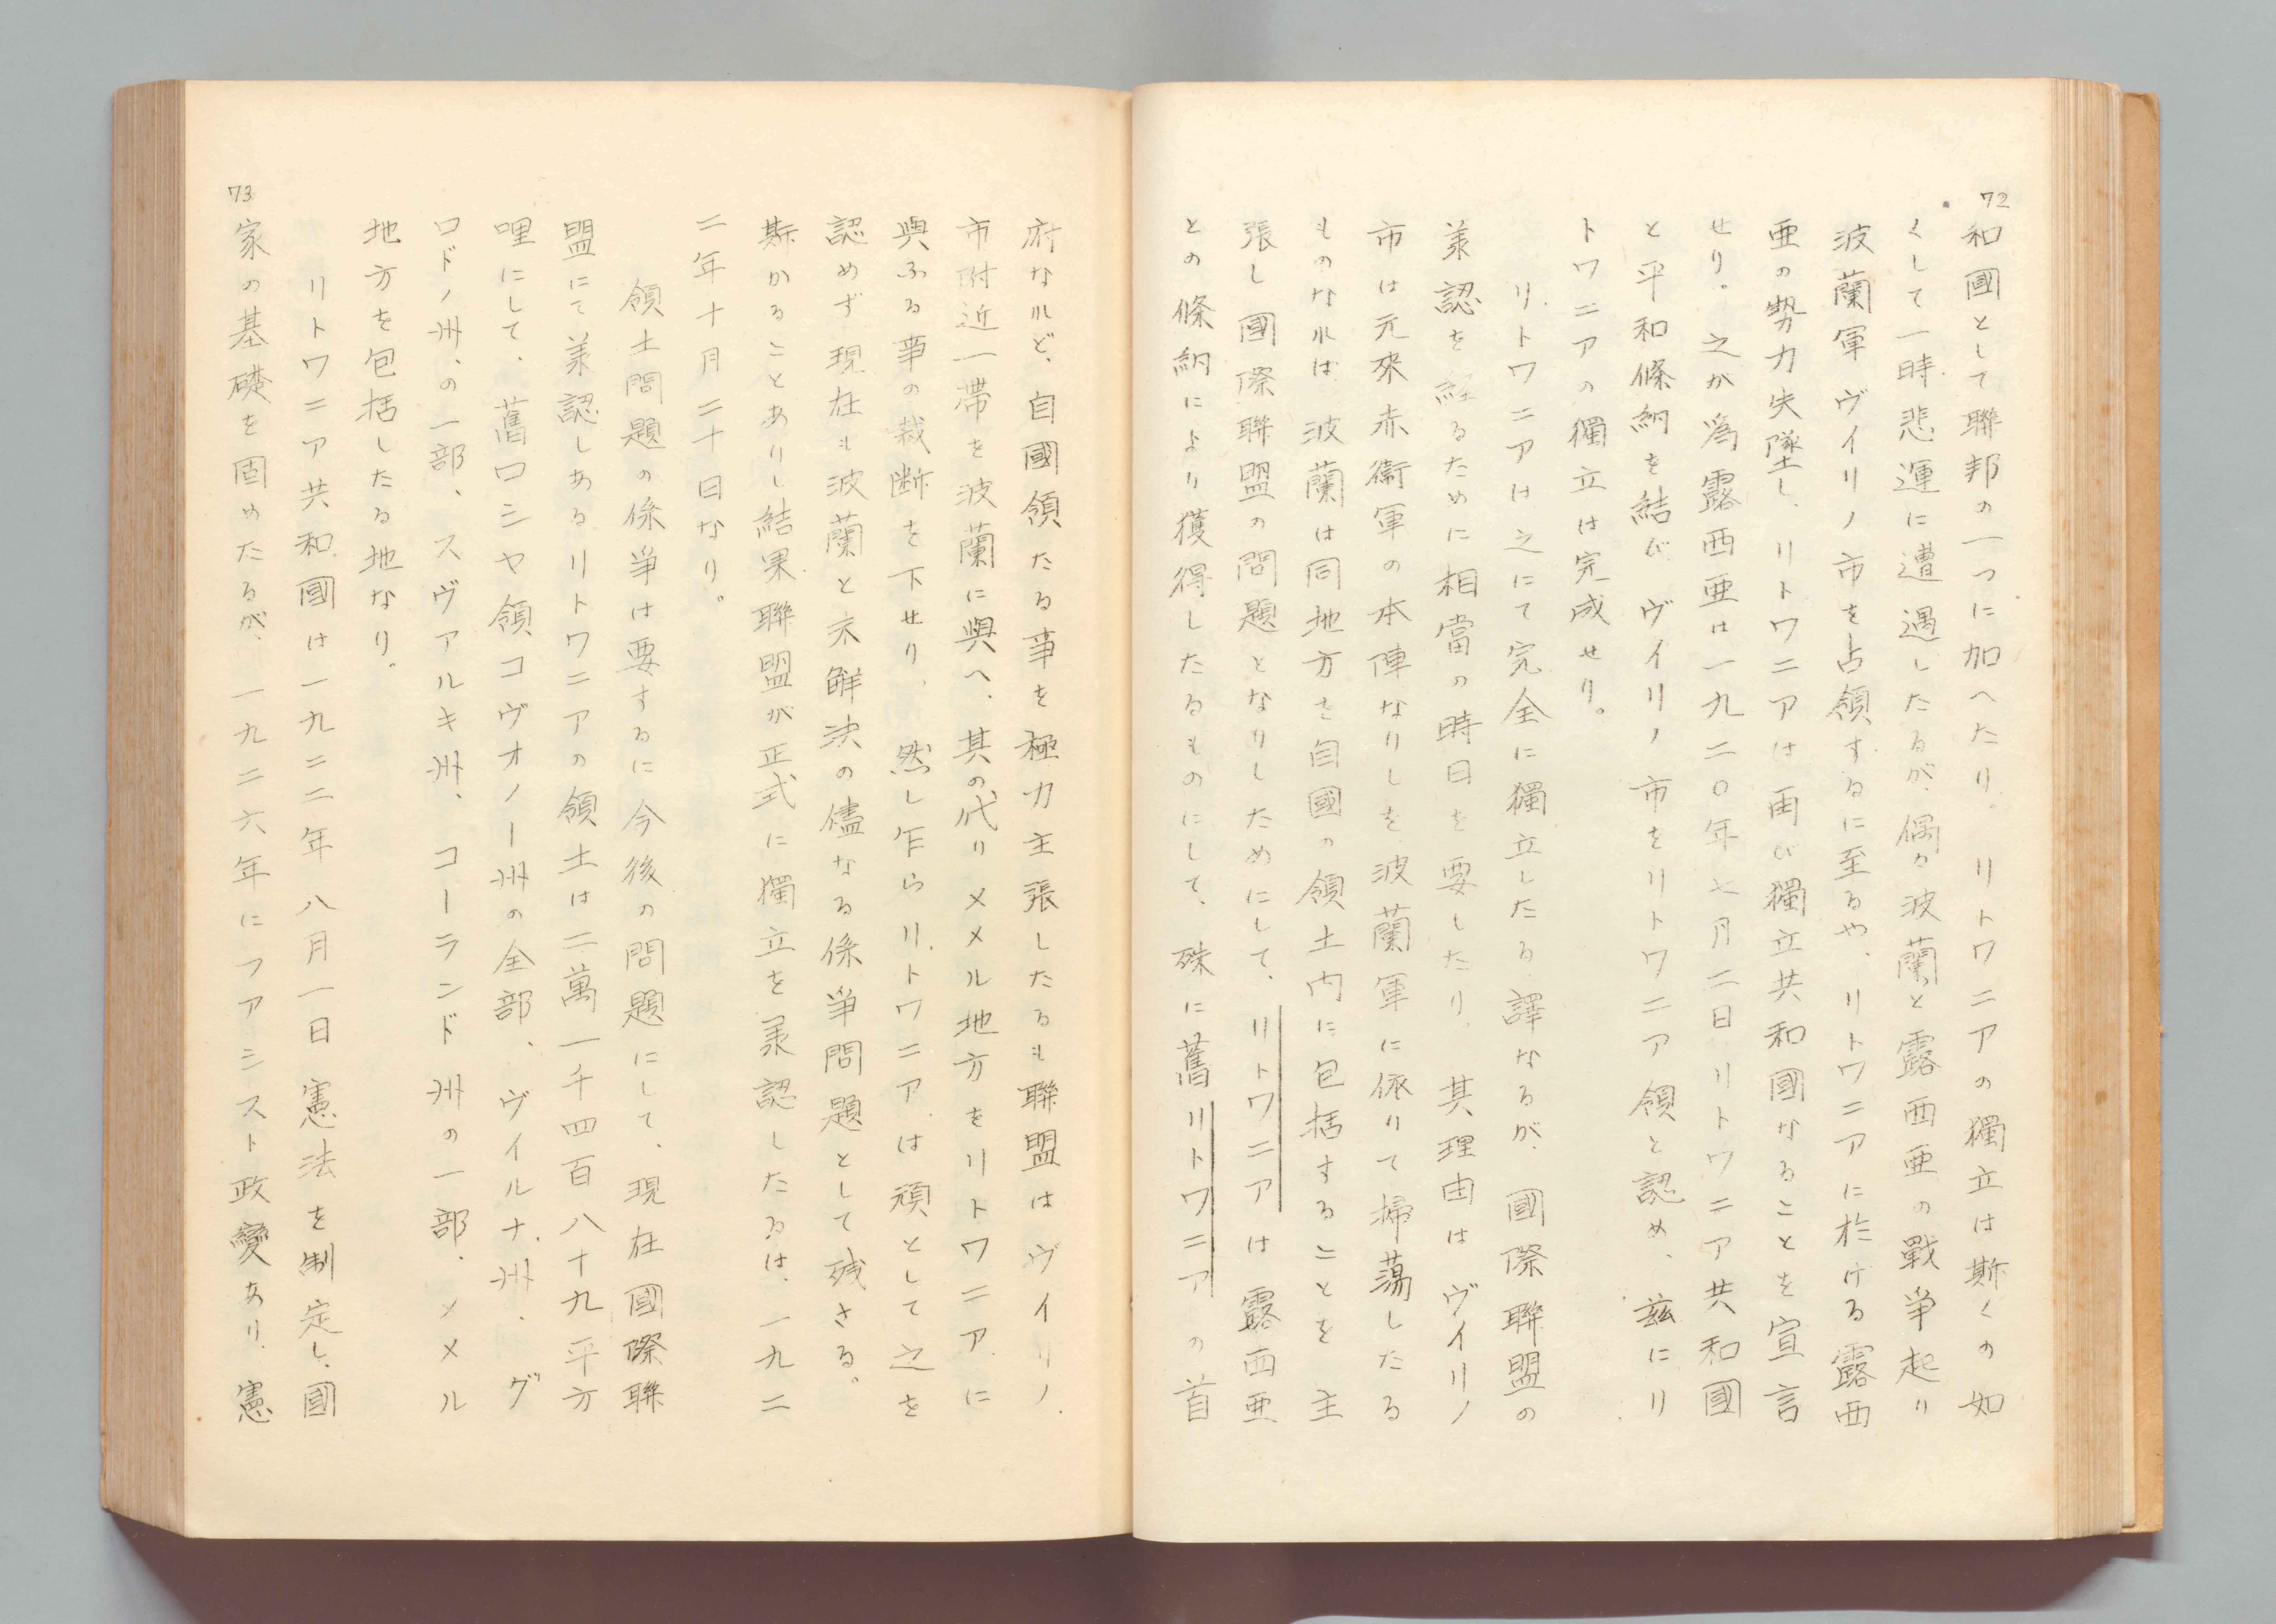 72
和國として聯邦の一つに加へたり。リトワニアの獨立は斯くの如
くして一時悲運に遭遇したるが、偶々波蘭と露西亜の戰争起り
波蘭軍ヴイリノ市を占領するに至るや、リトワニアに於ける露西
亜の勢力失墜し、リトワニアは再び獨立共和國なることを宣言
せり。之が為露西亜は一九二〇年七月二日リトワニア共和國
と平和條約を結び、ヴイリノ市をリトワニア領と認め、茲にリ
トワニアの獨立は完成せり。
リトワニアは之にて完全に獨立したる譯なるが、國際聯盟の
羕認を経るために相當の時日を要したり。其理由はヴイリノ
市は元來赤衞軍の本陣なりしを波蘭軍に依りて掃蕩したる
ものなれば波蘭は同地方を自國の領土内に包括することを主
張し國際聯盟の問題となりしためにして、リトワニアは露西亜
との條約により獲得したるものにして、殊に舊リトワニアの首
府なれど、自國領たる事を極力主張したるも聯盟はヴイリノ
市附近一帶を波蘭に與へ、其の代りメメル地方をリトワニアに
與ふる事の裁断を下せり。然し乍らリトワニアは頑として之を
認めず現在も波蘭と未解決の儘なる係爭問題として残さる。
斯かることありし結果聯盟が正式に獨立を羕認したるは、一九二
二年十月二十日なり。
領土問題の係爭は要するに今後の問題にして、現在國際聯
盟にて羕認しあるリトワニアの領土は二萬一千四百八十九平方
哩にして、舊ロシヤ領コヴオノー州の全部、ヴイルナ州、グ
ロドノ州、の一部、スヴアルキ州、コーランド州の一部、メメル
地方を包括したる地なり。
リトワニア共和國は一九二二年八月一日憲法を制定し、國
73
家の基礎を固めたるが、一九二六年にフアシスト政變あり、憲